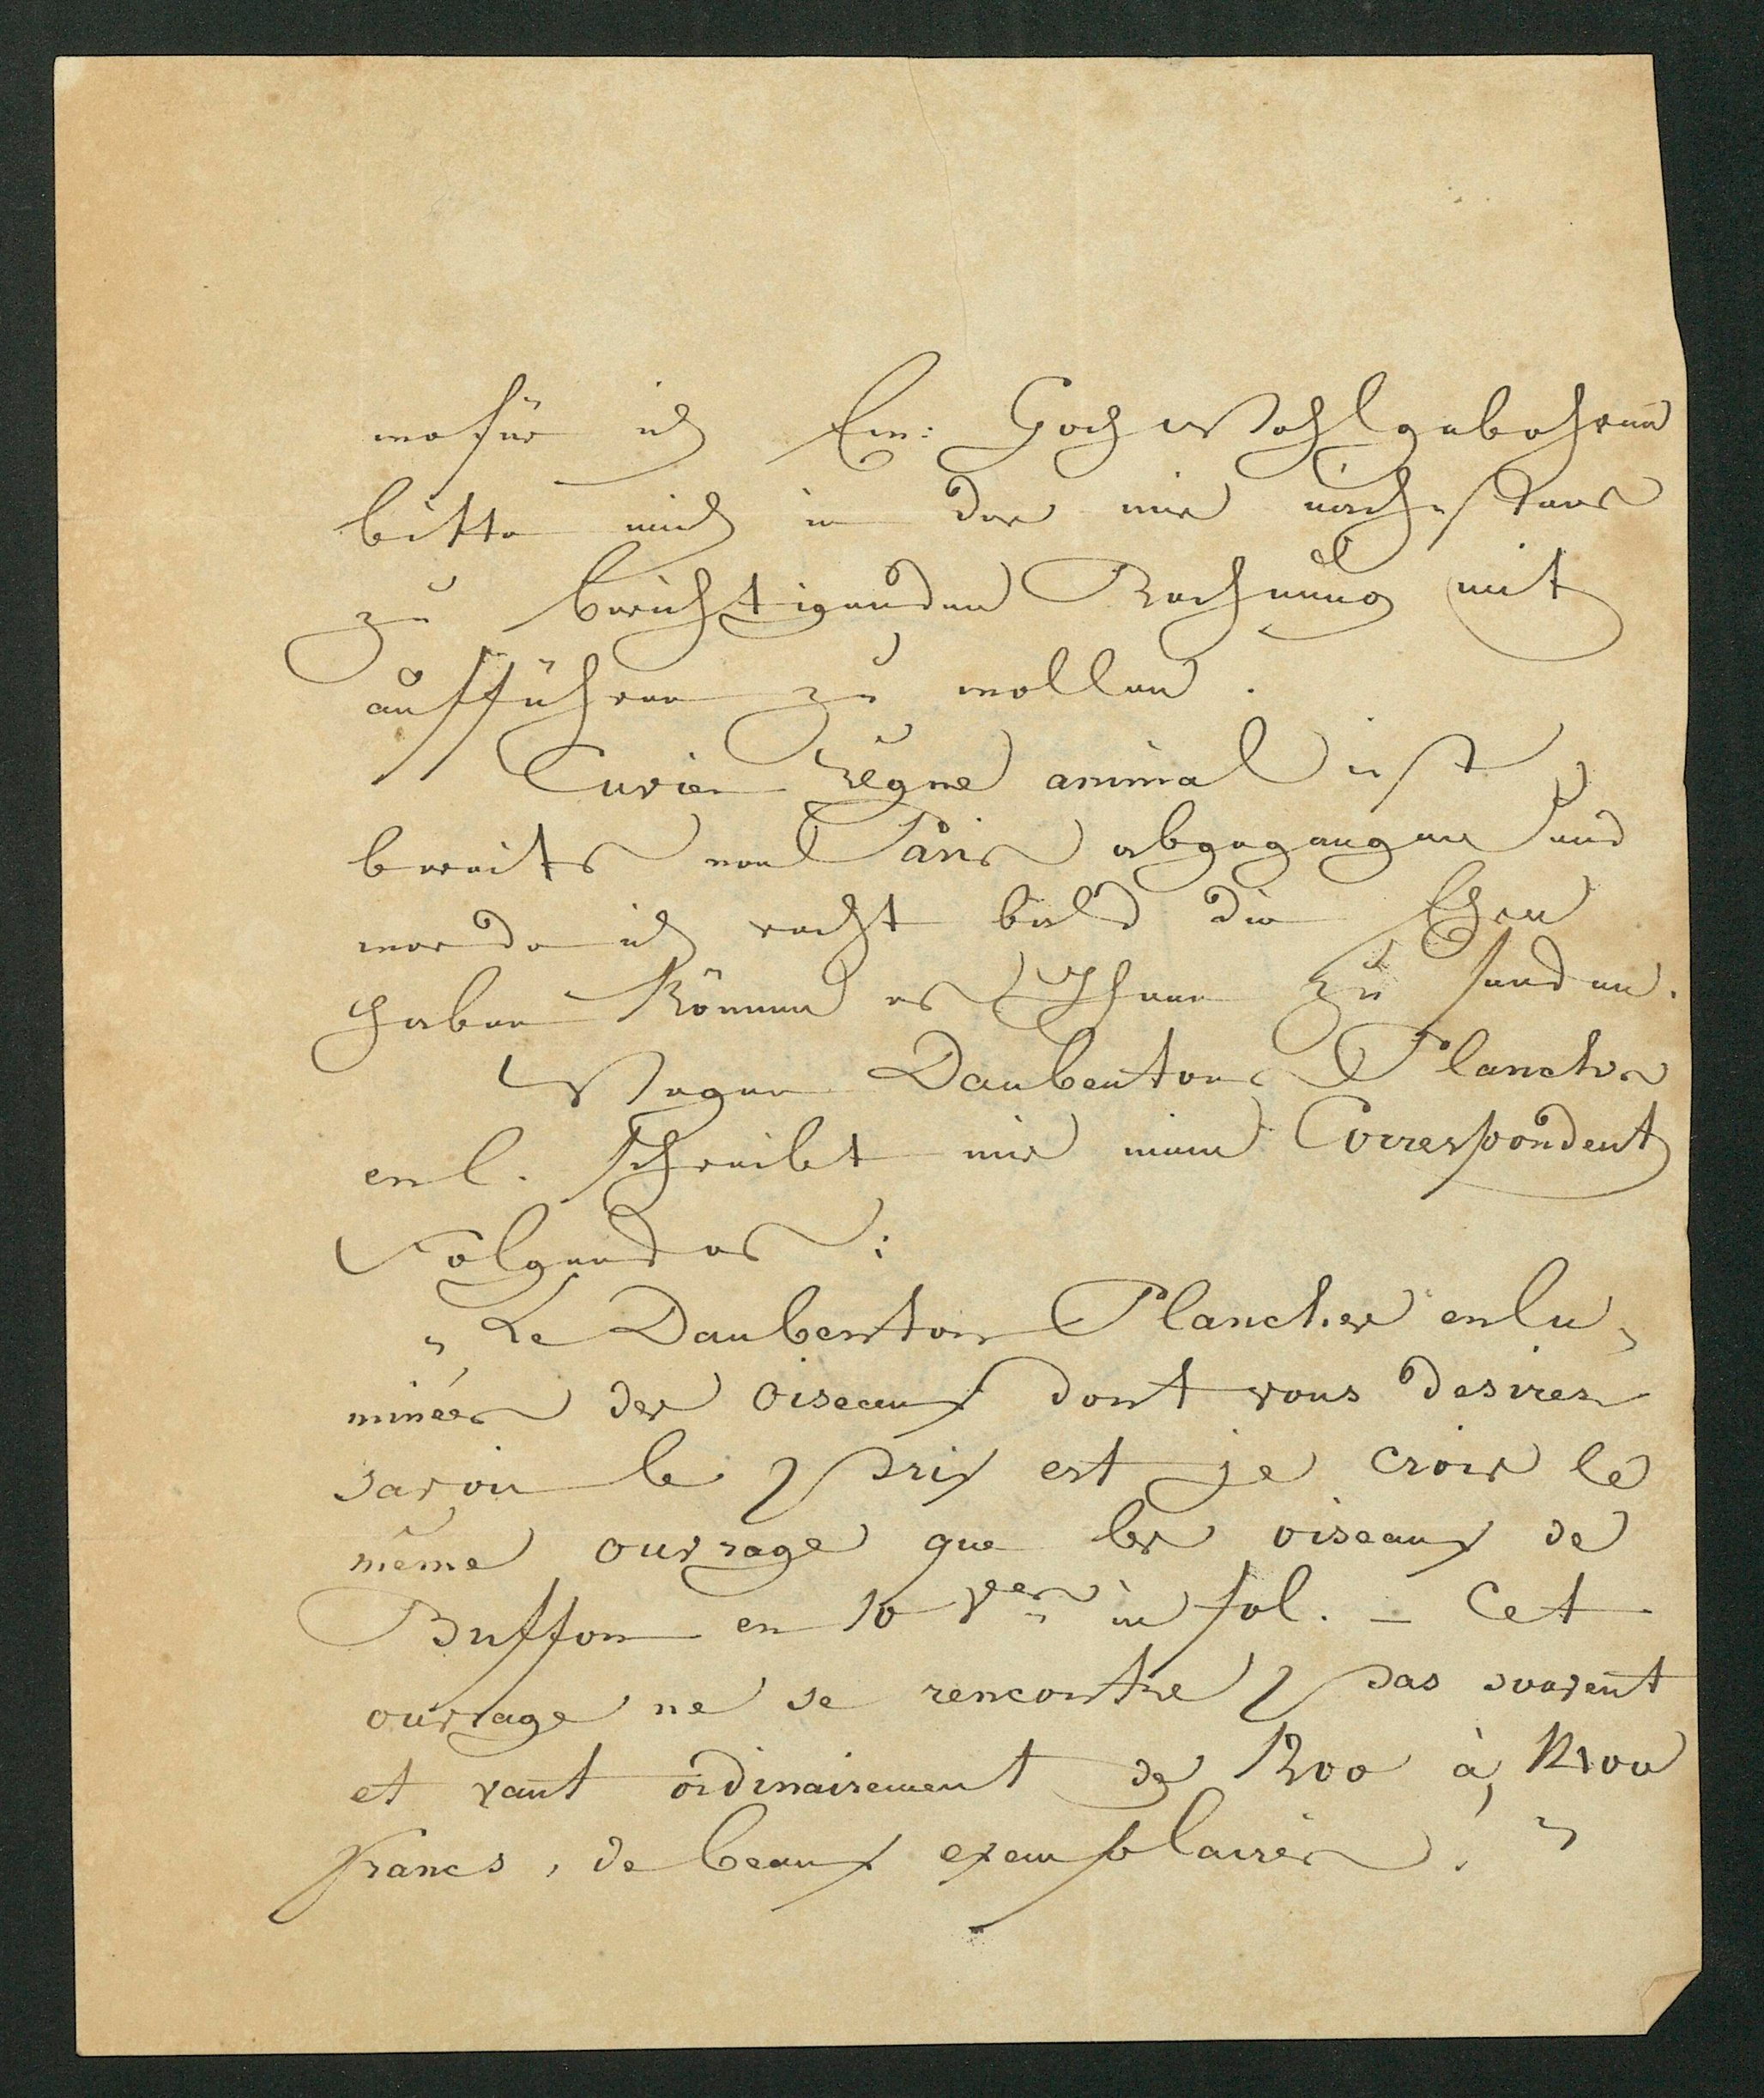 wofür ich Ew: Hochwohlgebohren
bitte mich in der mir nächstens
zu berichtigenden Rechnung mit
aufführen zu wollen.
Cuvier Règne animal ist
bereits von Paris abgegangen und
werde ich recht bald die Ehre
haben können es Ihnen zu senden.
Wegen Daubenton Planches
enl. schreibt mir mein Correspondent
Folgendes:
„Le Daubenton Planches enlu„
minées des oiseaux dont vous desirez
savoir le prix est je crois le
même ouvrage que les oiseaux de
Buffon en 10 in fol. – Cet
ouvrage ne se rencontre pas souvent
et vaut ordinairement de 1200 à
francs, de beaux exemplaires."